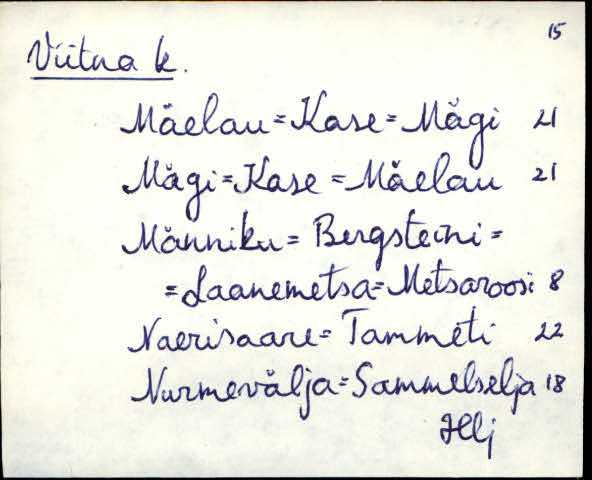 15
Viitna k.
Mäelau = Kase = Mägi 21
Mägi = Kase = Mäelau 21
Männiku = Bergsteini =
= Laanemetsa = Metsaroosi 8
Naerisaare = Tammeti 22
Nurmevälja = Sammelselja 18
Hlj